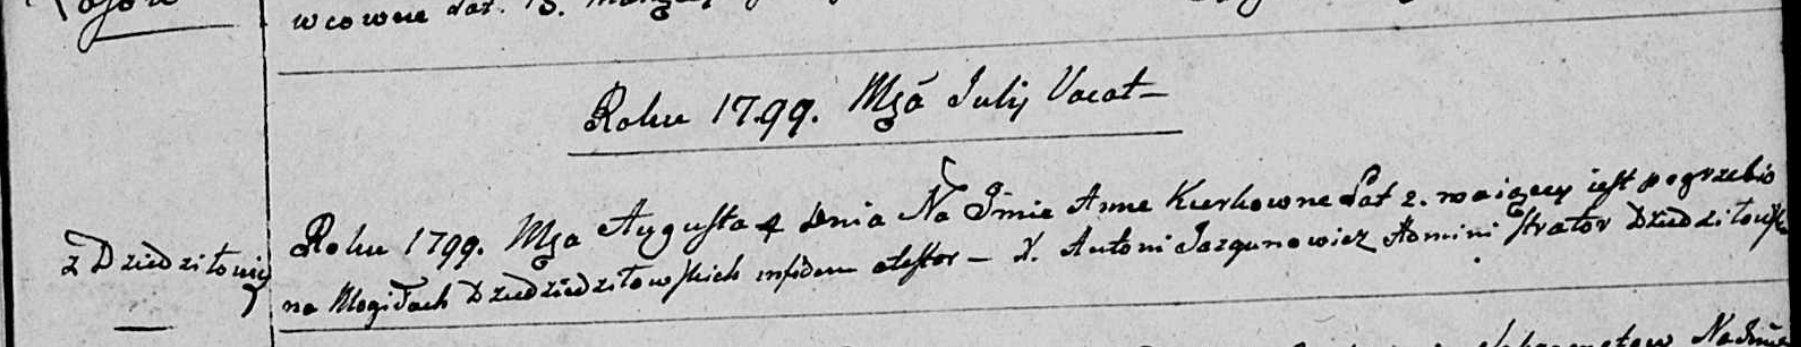 wcowne Lat. 13.
Roku 1799. Mƺa Julij Vacat —
z Dziedziłowicz
Roku 1799. Mƺa Augusta 4 Dnia Na Jmie Anne Kurkowne Lat 2. maiącey iest pogrzebio
na Mogiłach Dziedziedziłowskich infidem atestor — X. Antoni Jazgunowicz Administrator Dziedziłowski